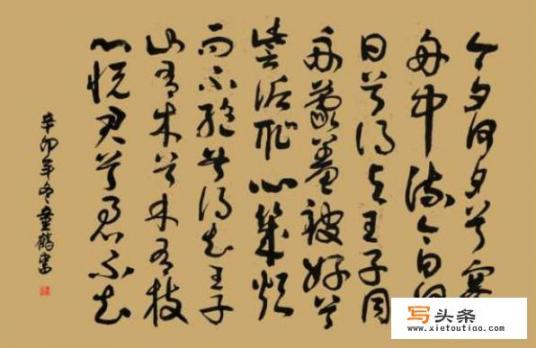 今夕何夕兮搴
舟中流今日何
日兮得与王子同
舟蒙羞被好兮
訾诟耻心几烦
而不絕兮得知王子
山有木兮木有枝
心悦君兮君不知
辛卯年冬童鹤书
写头条
www.xietoutiao.com